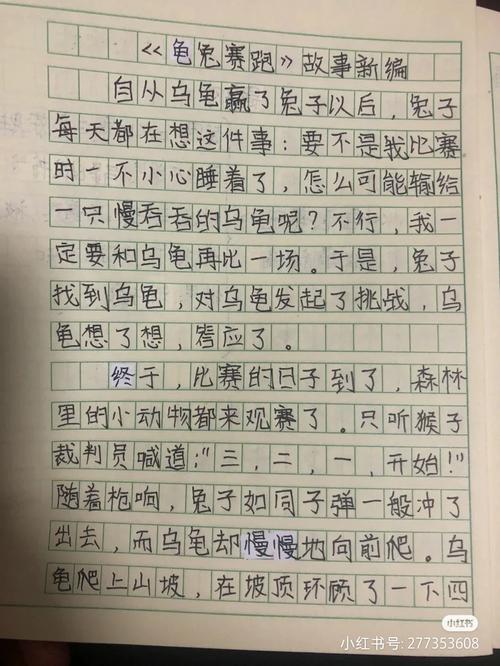 《龟兔赛跑》故事新编
自从乌龟赢了兔子以后，兔子
每天都在想这件事：要不是我比赛
时一不小心睡着了，怎么可能输给
一只慢吞吞的乌龟呢？不行，我一
定要和乌龟再比一场。于是，兔子
找到乌龟，对乌龟发起了挑战，乌
龟想了想，答应了。
终于，比赛的日子到了，森林
里的小动物都来观赛了。只听猴子
裁判员喊道：“三，二，一，开始！”
随着枪响，兔子如同子弹一般冲了
出去，而乌龟却慢慢地向前爬。乌
龟爬上山坡，在坡顶环顾了一下四
小红书
小红书号: 277353608